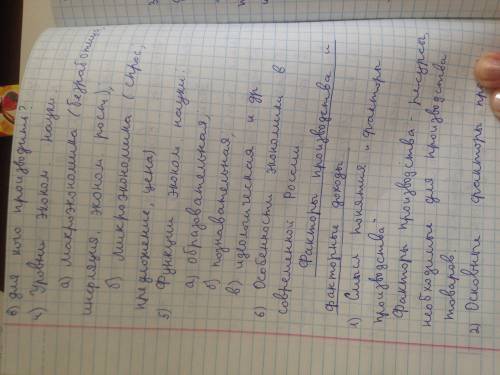 в) для кого производить?
4) Уровни эконом науки
а) макроэкономика (безработица,
инфляция, эконом рост);
б) микроэкономика (спрос,
предложение, цена)
5) Функции эконом науки.
а) образовательная;
б) познавательная;
в) идеологическая и др
6) Особенности экономики в
современной России
Факторы производства и
факторные доходы
1) Смысл понятия „Факторы
производства"
Факторы производства - ресурсы,
необходимые для производства
товаров
2) Основные факторы